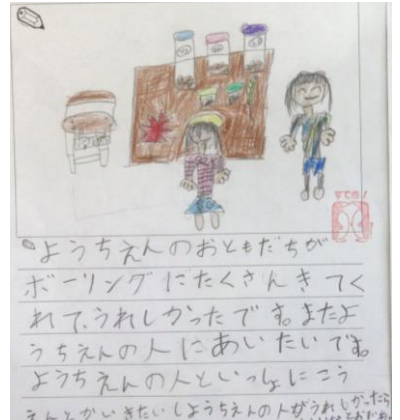 ようちえんのおともだちが
ボーリングにたくさんきてく
れて、うれしかったです。またよ
うちえんの人にあいたいです。
ようちえんの人といっしょにこう
えんとかいきたいしようちえんの人がうれしかったら